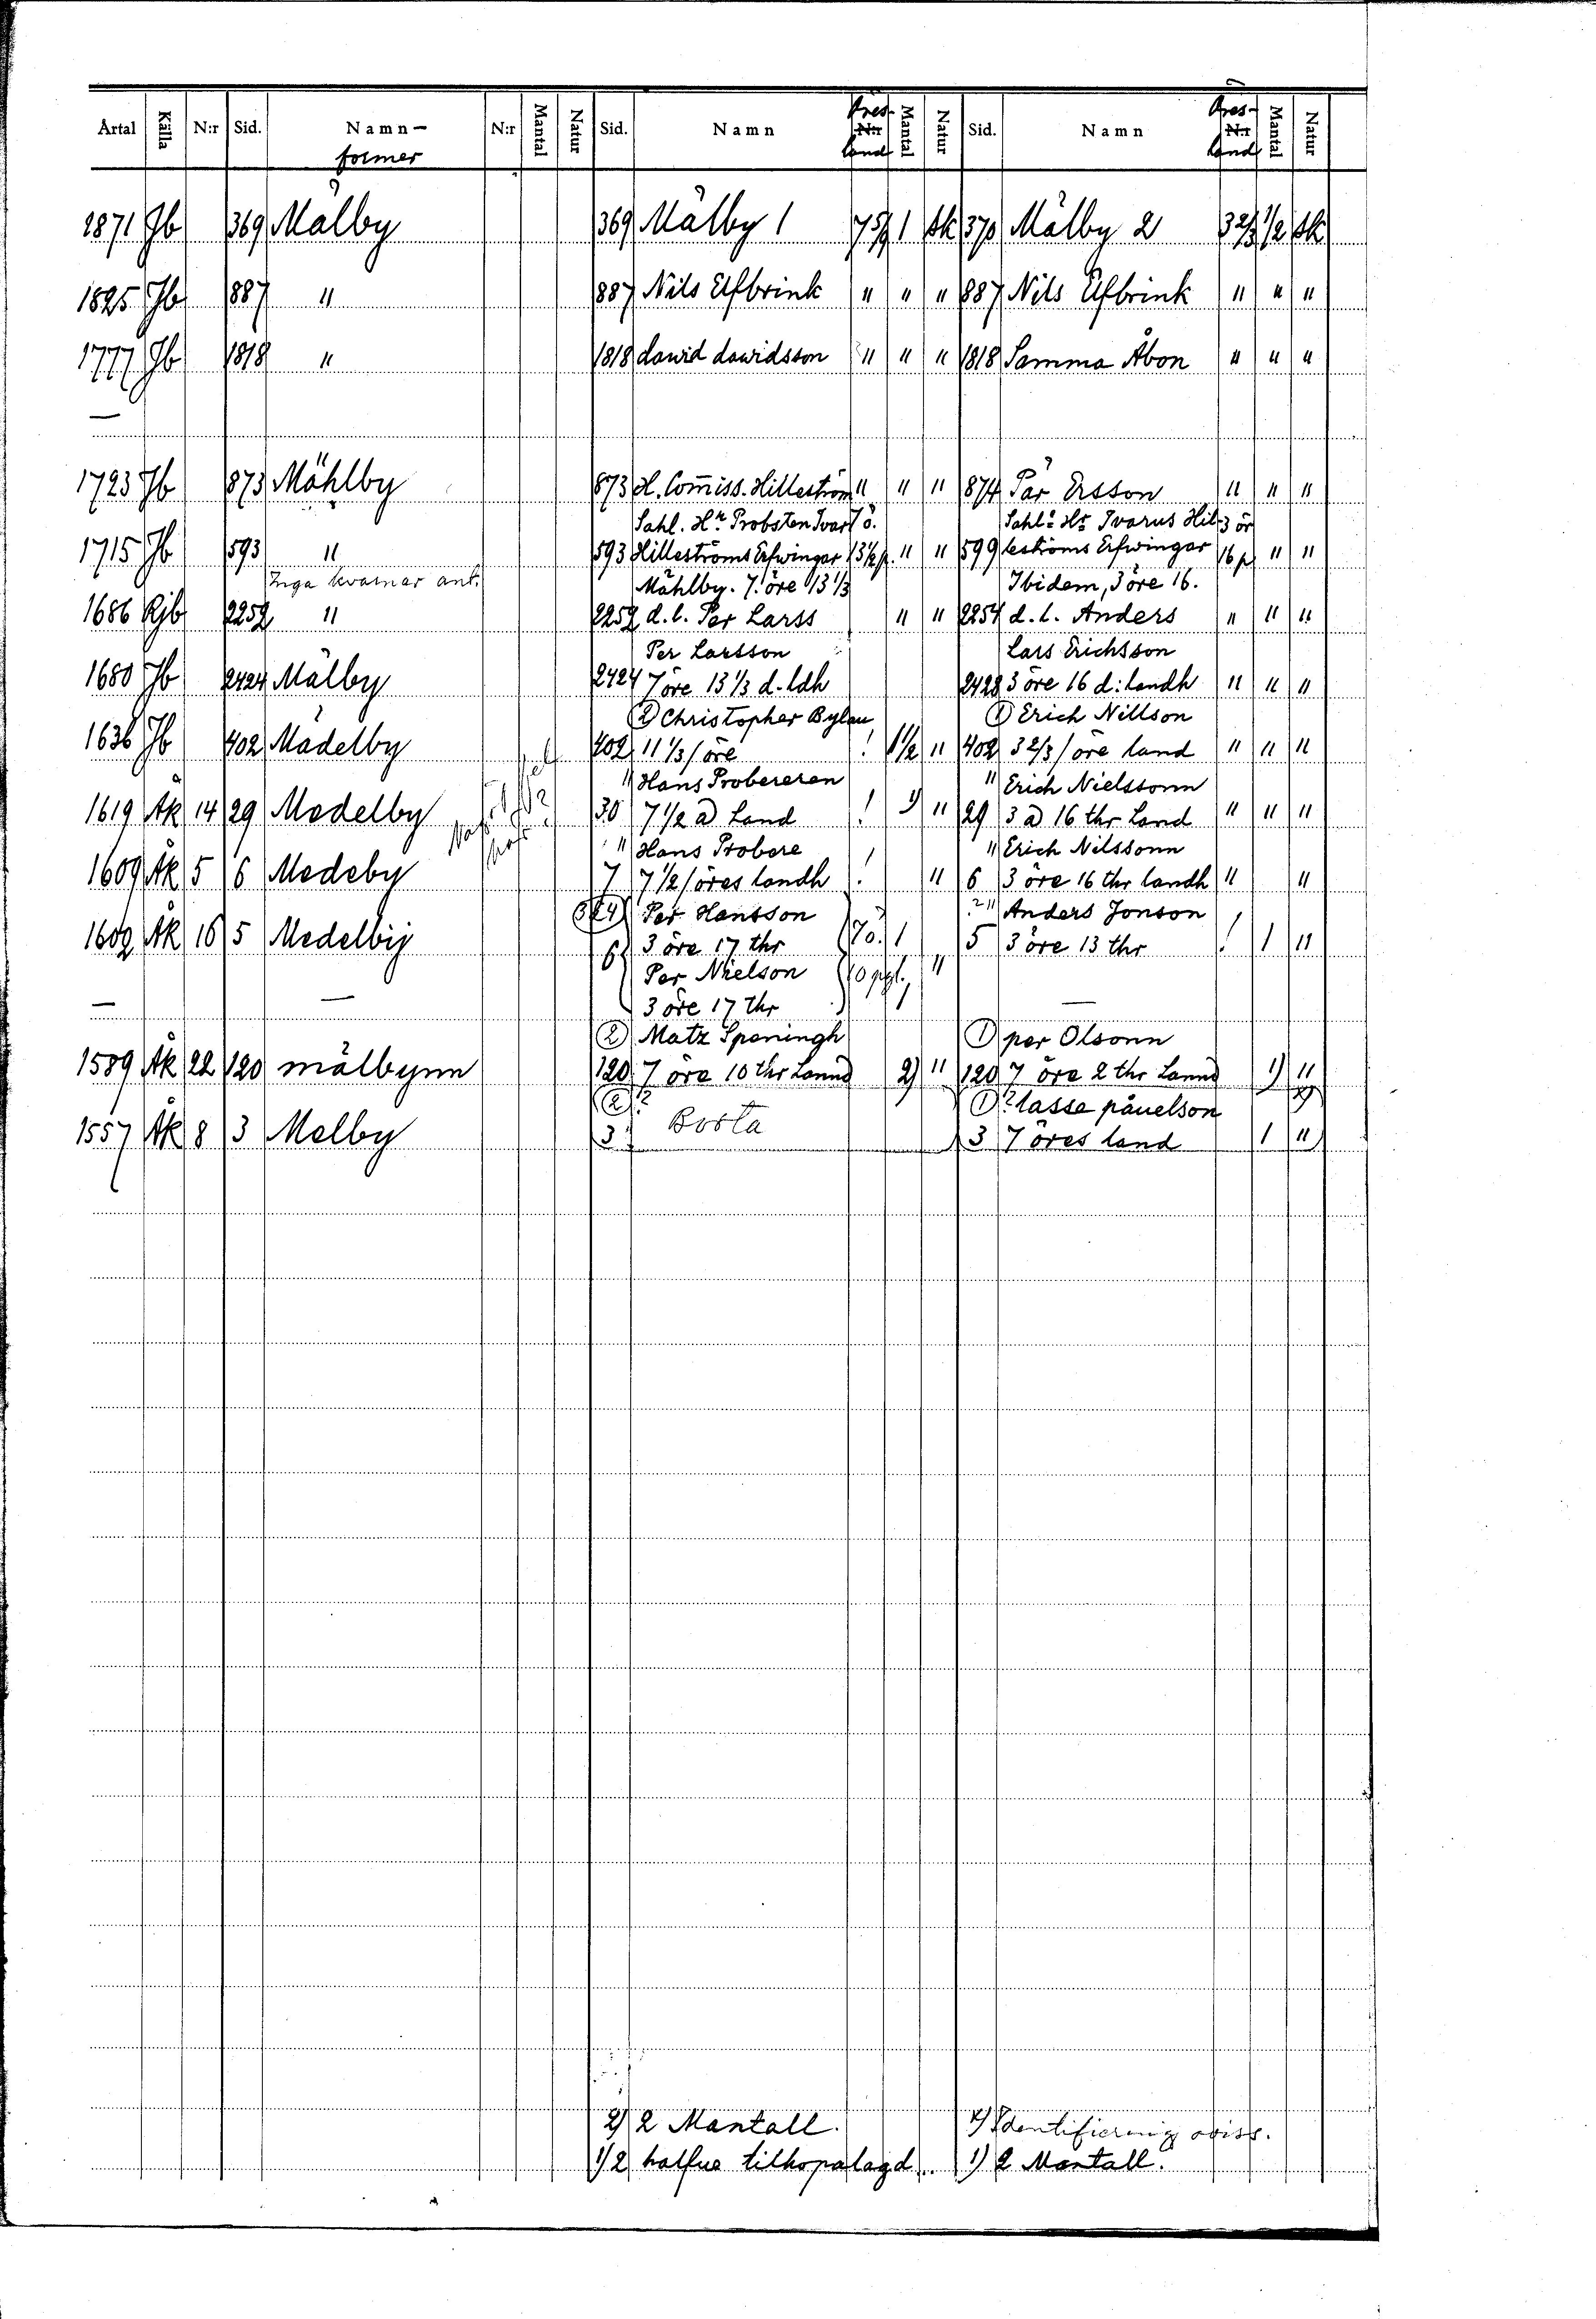 Årtal Källa N:r Sid. Namn- former N:r Mantal Natur Sid. Namn Öres- N:r land Mantal Natur Sid. Namn Öres- N:r land Mantal Natur
1871 Jb 369 Mälby 369 Mälby 1 7 5/9 1 Sk 370 Mälby 2 3 2/3 1/2 Sk
1825 Jb 887 " 887 Nils Elfbrink " " " 887 Nils Elfbrink " " "
1777 Jb 1818 " 1818 dawid dawidsson " " " 1818 Samma Åbon " " "
—
1723 Jb 873 Mählby 873 H. Com̄iss. Hilleström " " " 874 Pär Ersson " " "
Sahl. Hr. Probsten Ivar 7 ö. Sahl: Hr Ivarus Hil- 3 ör
1715 Jb 593 " 593 Hilleströms Erfwingar 13 1/2 p. " " 599 leströms Erfwingar 16 p " "
Inga kvarnar ant. Mählby. 7. öre 13 1/3 Ibidem, 3 öre 16.
1686 Rjb 2252 " 2252 d. l. Per Larss " " 2254 d. l. Anders " " "
Per Larsson Lars Erichsson
1680 Jb 2424 Mälby 2424 7 öre 13 1/3 d. ldh 2428 3 öre 16 d: landh " " "
(2) Christopher Bylau (1) Erich Nillson
1636 Jb 402 Mädelby 402 11 1/3 / öre ! 1 1/2 " 402 3 2/3 / öre land " " "
" Hans Probereren " Erich Nielssonn
1619 Åk 14 29 Medelby 30 7 1/2 a) Land ! 1) " 29 3 a) 16 thr Land " " "
" Hans Probere " Erich Nilssonn
1609 Åk 5 6 Medeby 7 7 1/2 / öres landh ! " 6 3 öre 16 thr landh " "
Per Hansson ? " Anders Jonson
1602 Åk 16 5 Medelbij 6 3 öre 17 thr 7 ö. 1 5 3 öre 13 thr ! 1 "
Per Nielson 10 pgl. "
— — 3 öre 17 thr 1 —
(2) Matz Speningh (1) per Olsonn
1589 Åk 22 120 mälbynn 120 7 öre 10 thr Lannd 2) " 120 7 öre 2 thr Lannd 1) "
(2)? (1)? lasse påuelson
1557 Åk 8 3 Melby 3 Borta 3 7 öres land 1 "
2) 2 Mantall. x) Identifiering oviss.
1) 2 halfue tilhopalagd. 1) 2 Mantall.